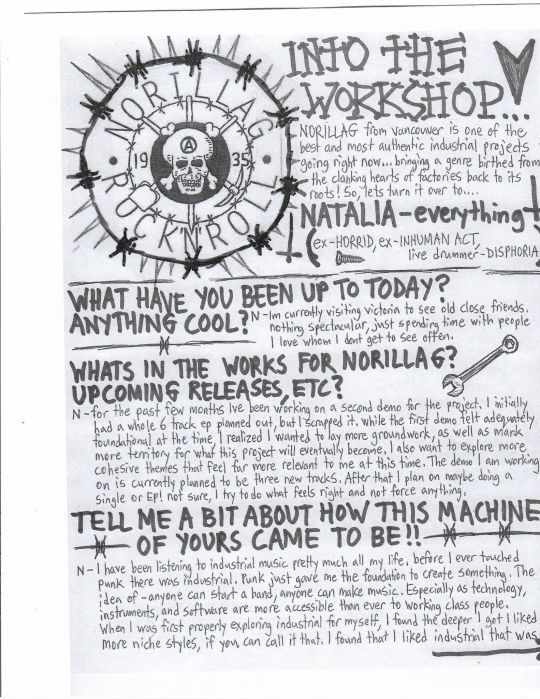 NORILLAG
19 35
ROCK'N'ROLL
INTO THE
WORKSHOP...
NORILLAG from vancouver is one of the
best and most authentic industrial projects
going right now... bringing a genre birthed from
the clanking hearts of factories back to its
roots! So, lets turn it over to....
NATALIA-everything
(ex-HORRID, ex-INHUMAN ACT,
live drummer-DISPHORIA
WHAT HAVE YOU BEEN UP TO TODAY?
ANYTHING COOL?
N-Im currently visiting victoria to see old close friends.
nothing spectacular, just spending time with people
I love whom I dont get to see often.
WHATS IN THE WORKS FOR NORILLAG?
UPCOMING RELEASES, ETC?
N-for the past few months Ive been working on a second demo for the project. I initially
had a whole 6 track ep planned out, but I scrapped it. while the first demo felt adequately
foundational at the time, I realized I wanted to lay more groundwork, as well as mark
more territory for what this project will eventually become. I also want to explore more
cohesive themes that feel far more relevant to me at this time. The demo I am working
on is currently planned to be three new tracks. After that I plan on maybe doing a
single or EP! not sure, I try to do what feels right and not force anything.
TELL ME A BIT ABOUT HOW THIS MACHINE
OF YOURS CAME TO BE!!
N-I have been listening to industrial music pretty much all my life. before I ever touched
punk there was industrial. Punk just gave me the foundation to create something. The
idea of -anyone can start a band, anyone can make music. Especially as technology,
instruments, and software are more accessible than ever to working class people.
When I was first properly exploring industrial for myself, I found the deeper I got I liked
more niche styles, if you can call it that. I found that I liked industrial that was